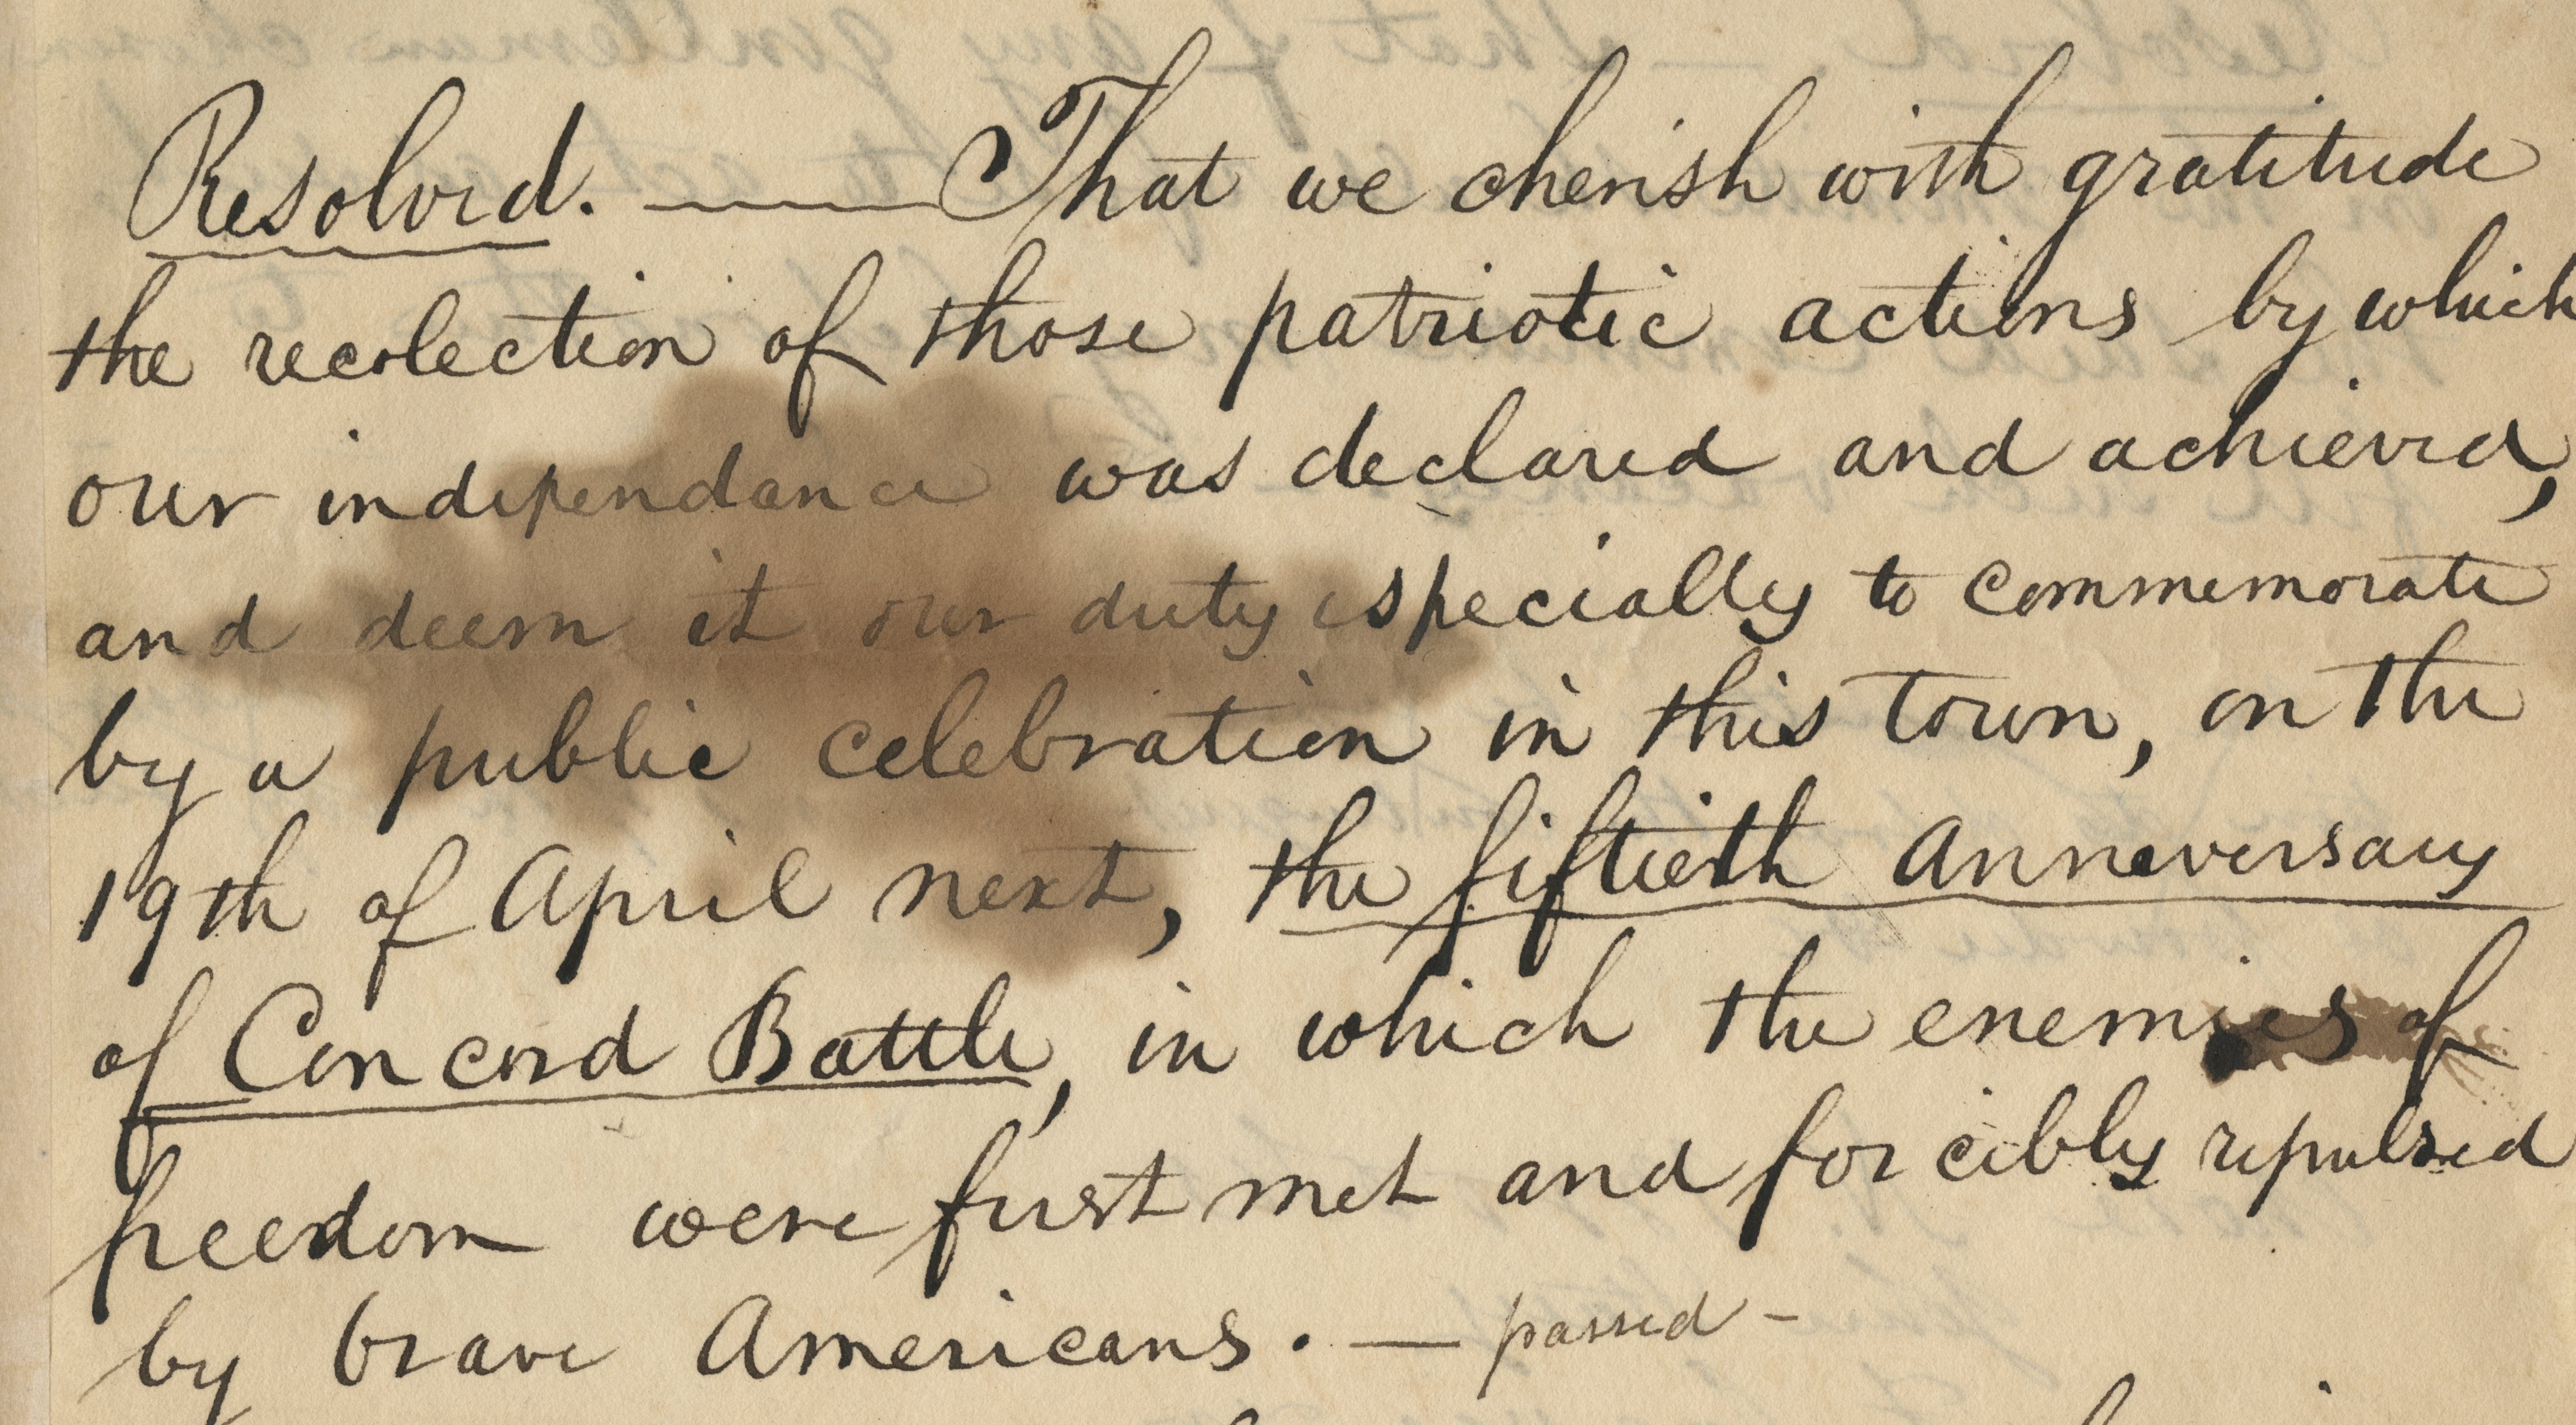 Resolved. — That we cherish with gratitude
the recolection of those patriotic actions by which
our independance was declared and achieved,
and deem it our duty especially to commemorate
by a public celebration in this town, on the
19th of April next, the fiftieth Anneversary
of Concord Battle, in which the enemies of
freedom were first met and forcibly repulsed
by brave Americans. — passed –